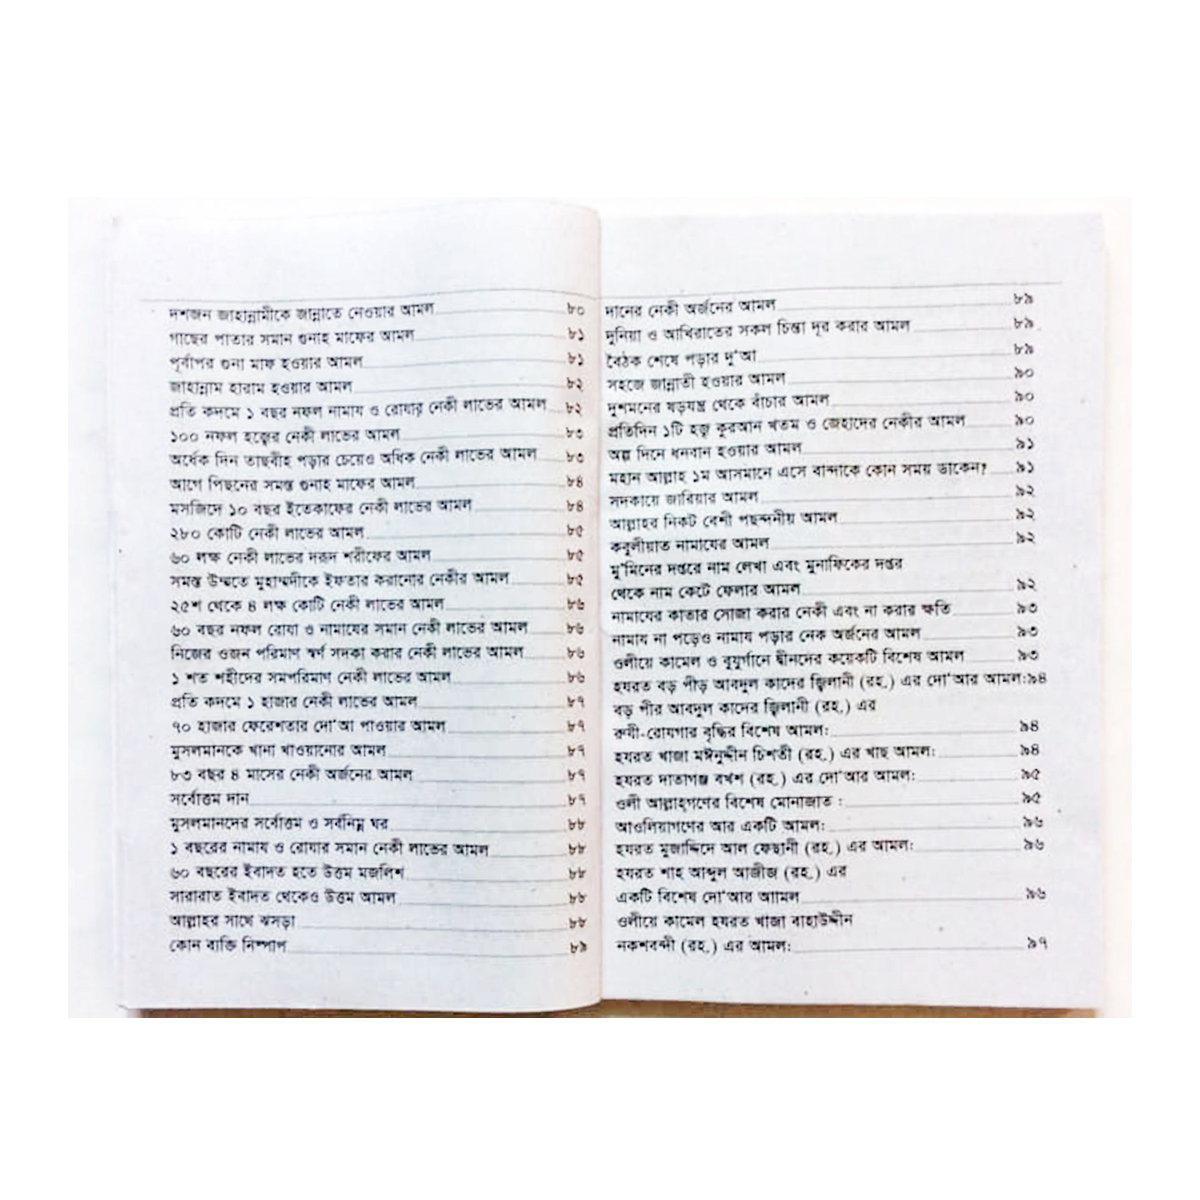 দশজন জাহান্নামীকে জান্নাতে নেওয়ার আমল ৮০
গাছের পাতার সমান গুনাহ মাফের আমল ৮১
পূর্বাপর গুনা মাফ হওয়ার আমল ৮১
জাহান্নাম হারাম হওয়ার আমল ৮২
প্রতি কদমে ১ বছর নফল নামায ও রোযার নেকী লাভের আমল ৮২
১০০ নফল হজ্বের নেকী লাভের আমল ৮৩
অর্ধেক দিন তাছবীহ পড়ার চেয়েও অধিক নেকী লাভের আমল ৮৩
আগে পিছনের সমস্ত গুনাহ মাফের আমল ৮৪
মসজিদে ১০ বছর ইতেকাফের নেকী লাভের আমল ৮৪
২৮০ কোটি নেকী লাভের আমল ৮৫
৬০ লক্ষ নেকী লাভের দরূদ শরীফের আমল ৮৫
সমস্ত উম্মতে মুহাম্মদীকে ইফতার করানোর নেকীর আমল ৮৫
২৫শ থেকে ৪ লক্ষ কোটি নেকী লাভের আমল ৮৬
৬০ বছর নফল রোযা ও নামাযের সমান নেকী লাভের আমল ৮৬
নিজের ওজন পরিমাণ স্বর্ণ সদকা করার নেকী লাভের আমল ৮৬
১ শত শহীদের সমপরিমাণ নেকী লাভের আমল ৮৬
প্রতি কদমে ১ হাজার নেকী লাভের আমল ৮৭
৭০ হাজার ফেরেশতার দো'আ পাওয়ার আমল ৮৭
মুসলমানকে খানা খাওয়ানোর আমল ৮৭
৮৩ বছর ৪ মাসের নেকী অর্জনের আমল ৮৭
সর্বোত্তম দান ৮৭
মুসলমানদের সর্বোত্তম ও সর্বনিম্ন ঘর ৮৮
১ বছরের নামায ও রোযার সমান নেকী লাভের আমল ৮৮
৬০ বছরের ইবাদত হতে উত্তম মজলিশ ৮৮
সারারাত ইবাদত থেকেও উত্তম আমল ৮৮
আল্লাহর সাথে ঝসড়া ৮৮
কোন ব্যক্তি নিষ্পাপ ৮৯
দানের নেকী অর্জনের আমল ৮৯
দুনিয়া ও আখিরাতের সকল চিন্তা দূর করার আমল ৮৯
বৈঠক শেষে পড়ার দু'আ ৮৯
সহজে জান্নাতী হওয়ার আমল ৯০
দুশমনের ষড়যন্ত্র থেকে বাঁচার আমল ৯০
প্রতিদিন ১টি হজ্ব কুরআন খতম ও জেহাদের নেকীর আমল ৯০
অল্প দিনে ধনবান হওয়ার আমল ৯১
মহান আল্লাহ ১ম আসমানে এসে বান্দাকে কোন সময় ডাকেন? ৯১
সদকায়ে জারিয়ার আমল ৯২
আল্লাহর নিকট বেশী পছন্দনীয় আমল ৯২
কবুলীয়াত নামাযের আমল ৯২
মু'মিনের দপ্তরে নাম লেখা এবং মুনাফিকের দপ্তর
থেকে নাম কেটে ফেলার আমল ৯২
নামাযের কাতার সোজা করার নেকী এবং না করার ক্ষতি ৯৩
নামায না পড়েও নামায পড়ার নেক অর্জনের আমল ৯৩
ওলীয়ে কামেল ও বুযুর্গানে দ্বীনদের কয়েকটি বিশেষ আমল ৯৩
হযরত বড় পীড় আবদুল কাদের জ্বিলানী (রহ.) এর দো'আর আমল:৯৪
বড় পীর আবদুল কাদের জ্বিলানী (রহ.) এর
রুযী-রোযগার বৃদ্ধির বিশেষ আমল: ৯৪
হযরত খাজা মঈনুদ্দীন চিশতী (রহ.) এর খাছ আমল: ৯৪
হযরত দাতাগঞ্জ বখশ (রহ.) এর দো'আর আমল: ৯৫
ওলী আল্লাহ্‌গণের বিশেষ মোনাজাত : ৯৫
আওলিয়াগণের আর একটি আমল: ৯৬
হযরত মুজাদ্দিদে আল ফেছানী (রহ.) এর আমল: ৯৬
হযরত শাহ আব্দুল আজীজ (রহ.) এর
একটি বিশেষ দো'আর আামল ৯৬
ওলীয়ে কামেল হযরত খাজা বাহাউদ্দীন
নকশবন্দী (রহ.) এর আমল: ৯৭